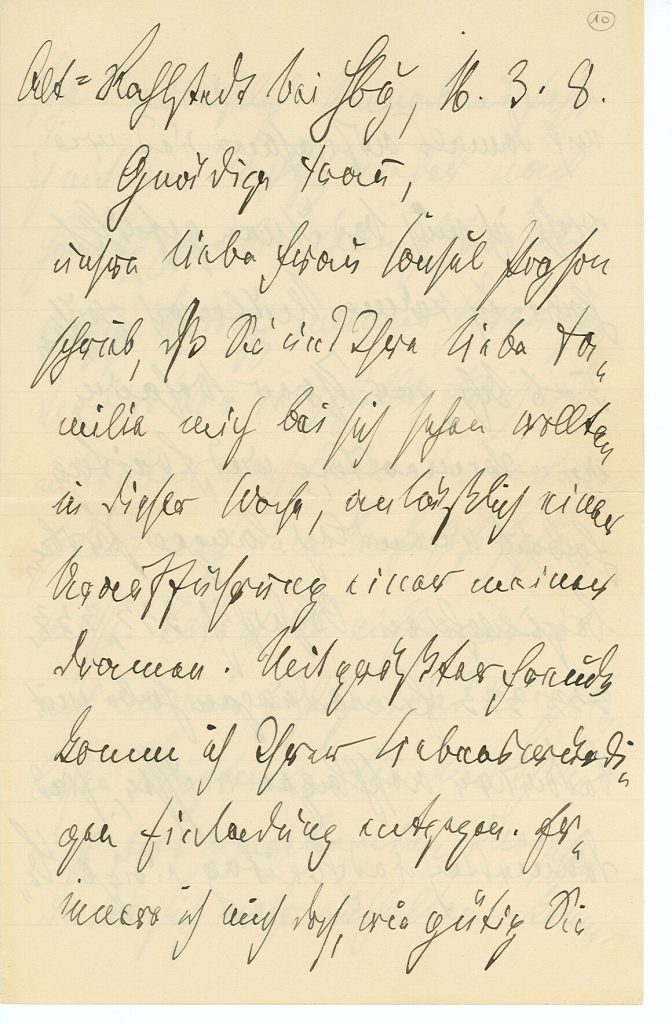 10
Alt-Rahlstedt bei Hbg, 16. 3. 8.
Gnädige Frau,
unsre liebe Frau Consul
schrieb, daß Sie und Ihre liebe Fa-
milie mich bei sich sehen wollten
in dieser Woche, anläßlich einer
Uraufführung einer meiner
Dramen. Mit größter Freude
komm ich Ihrer liebenswürdi-
gen Einladung entgegen. Er-
innere ich mich doch, wie gütig Sie